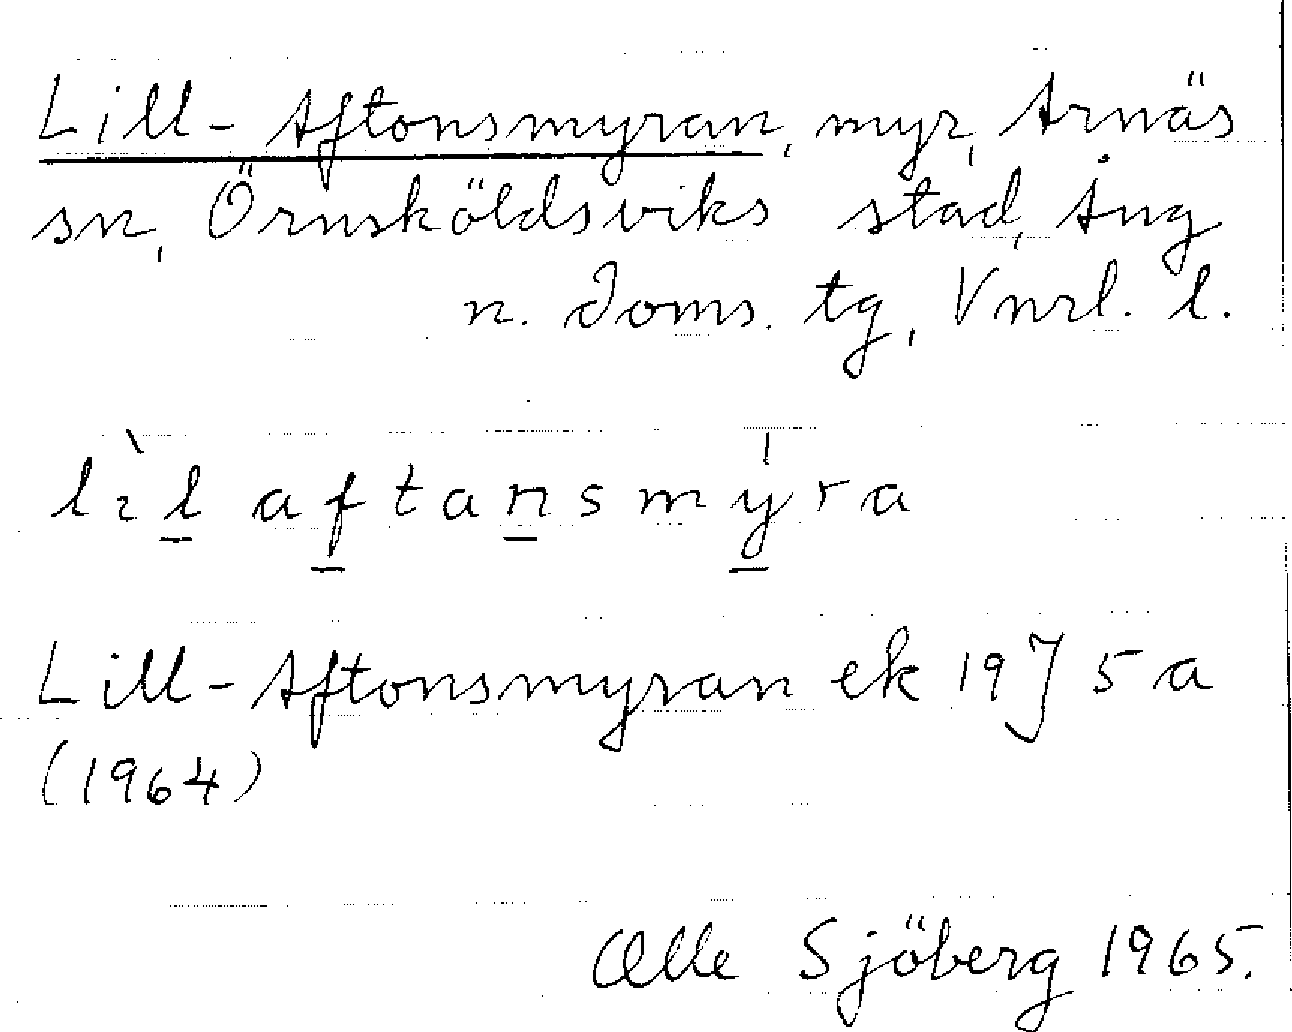 Lill-Aftonsmyran, myr, Arnäs
sn, Örnsköldsviks stad, Ång
n. doms. tg, Vnrl. l.
lìl aftansmyra
Lill-Aftonsmyran ek 19J5a
(1964)
Olle Sjöberg 1965.